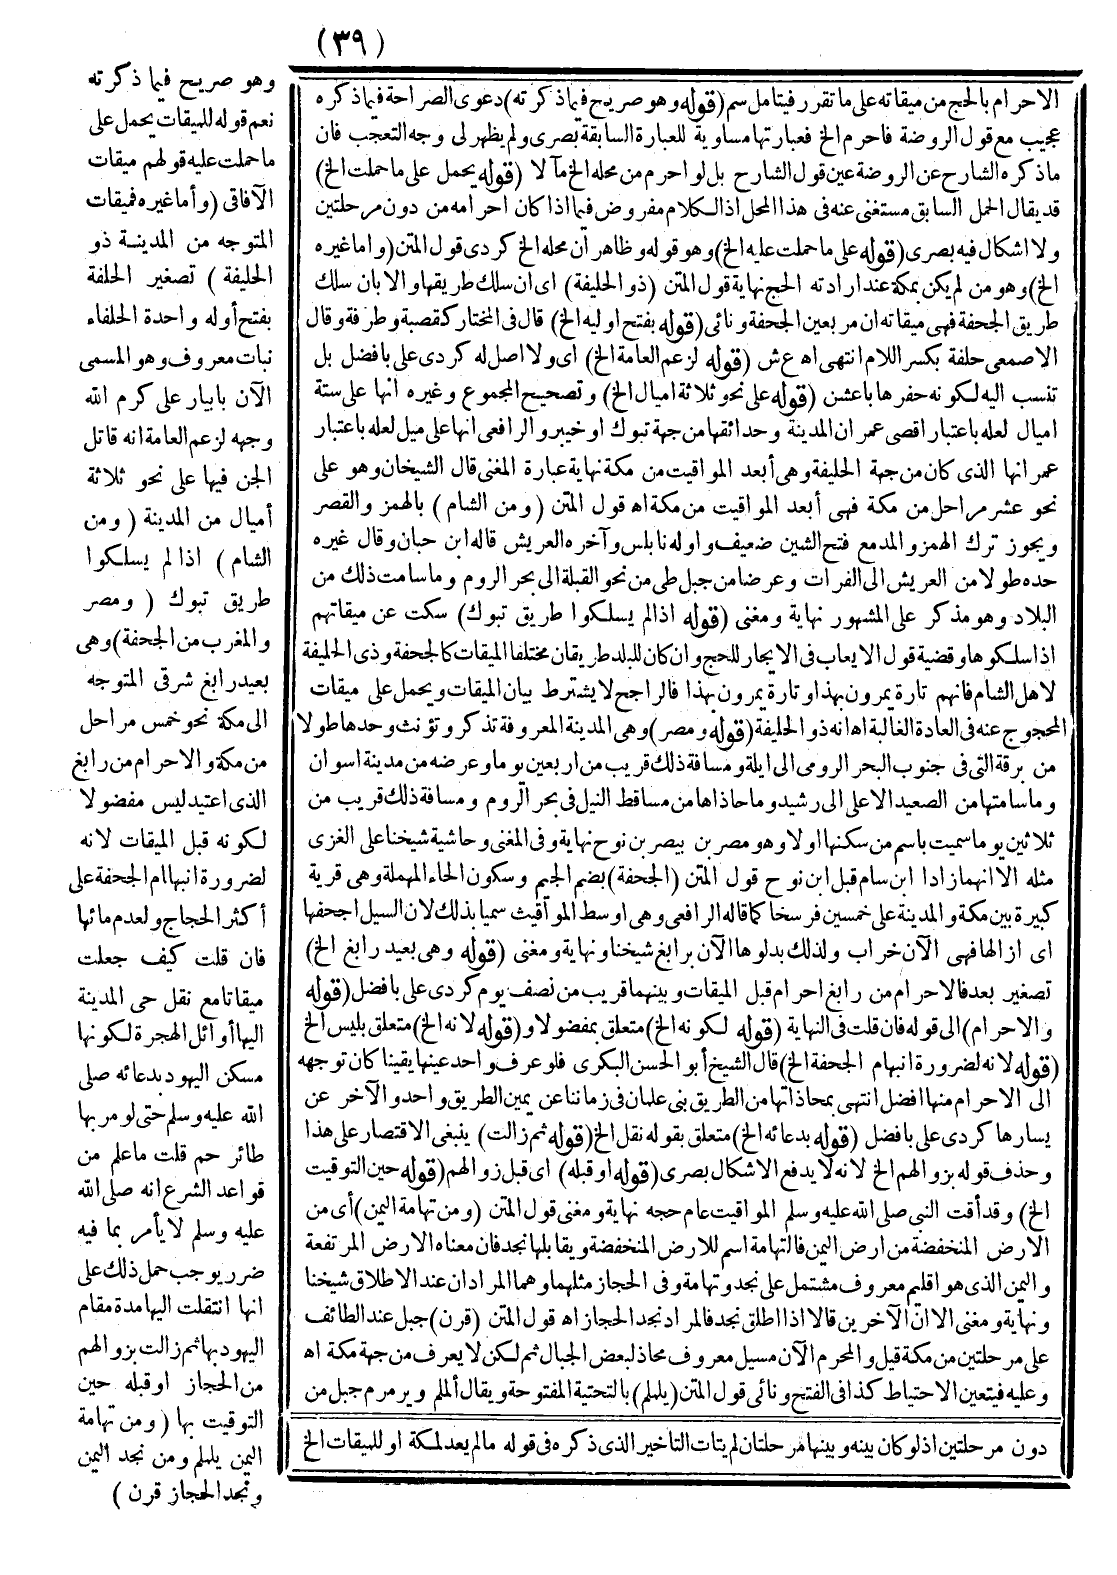 (٣٩)
الاحرام بالحج من ميقاته على ما تقرر فيتامل سم (قوله وهو صريح فيما ذكرته) دعوى الصراحة فيما ذكره
عجيب مع قول الروضة فاحرم الخ فعبارتها مساوية للعبارة السابقة بصرى ولم يظهر لى وجه التعجب فان
ما ذكره الشارح عن الروضة عين قول الشارح بل لو احرم من محله الخ مآلا (قوله يحمل على ما حملت الخ)
قد يقال الحمل السابق مستغنى عنه فى هذا المحل اذ الكلام مفروض فيما اذا كان احرامه من دون مرحلتين
ولا اشكال فيه بصرى (قوله على ما حملت عليه الخ) وهو قوله وظاهر ان محله الخ كردى قول المتن (واما غيره
الخ) وهو من لم يكن بمكة عند ارادته الحج نهاية قول المتن (ذو الحليفة) اى ان سلك طريقها والا بان سلك
طريق الجحفة فهى ميقاته ان مر بعين الجحفة ونائى (قوله بفتح اوليه الخ) قال فى المختار كقصبة وطرفة وقال
الاصمعى حلفة بكسر اللام انتهى اه ع ش (قوله لزعم العامة الخ) اى ولا اصل له كردى على بافضل بل
تنسب اليه لكونه حفرها باعشن (قوله على نحو ثلاثة اميال الخ) وتصحيح المجموع وغيره انها على ستة
اميال لعله باعتبار اقصى عمران المدينة وحدائقها من جهة تبوك او خيبر والرافعى انها على ميل لعله باعتبار
عمرانها الذى كان من جهة الحليفة وهى أبعد المواقيت من مكة نهاية عبارة المغنى قال الشيخان وهو على
نحو عشر مراحل من مكة فهى أبعد المواقيت من مكة اه قول المتن (ومن الشام) بالهمز والقصر
ويجوز ترك الهمز والمد مع فتح الشين ضعيف واوله نابلس وآخره العريش قاله ابن حبان وقال غيره
حده طولا من العريش الى الفرات وعرضا من جبل طى من نحو القبلة الى بحر الروم وما سامت ذلك من
البلاد وهو مذكر على المشهور نهاية ومغنى (قوله اذا لم يسلكوا طريق تبوك) سكت عن ميقاتهم
اذا سلكوها وقضية قول الايعاب فى الايجار للحج وان كان للبلد طريقان مختلفا الميقات كالجحفة وذى الحليفة
لاهل الشام فانهم تارة يمرون بهذا وتارة يمرون بهذا فالراجح لا يشترط بيان الميقات ويحمل على ميقات
المحجوج عنه فى العادة الغالبة اه انه ذو الحليفة (قوله ومصر) وهى المدينة المعروفة تذكر وتؤنث وحدها طولا
من برقة التى فى جنوب البحر الرومى الى ايلة ومسافة ذلك قريب من اربعين يوما وعرضه من مدينة اسوان
وما سامتها من الصعيد الاعلى الى رشيد وما حاذاها من مساقط النيل فى بحر الروم ومسافة ذلك قريب من
ثلاثين يوما سميت باسم من سكنها اولا وهو مصر بن بيصر بن نوح نهاية وفى المغنى وحاشية شيخنا على الغزى
مثله الا انهما زادا ابن سام قبل ابن نوح قول المتن (الجحفة) بضم الجيم وسكون الحاء المهملة وهى قرية
كبيرة بين مكة والمدينة على خمسين فرسخا كما قاله الرافعى وهى اوسط المواقيت سميا بذلك لان السيل اجحفها
اى ازالها فهى الآن خراب ولذلك بدلوها الآن برابغ شيخنا ونهاية ومغنى (قوله وهى بعيد رابغ الخ)
تصغير بعد فالاحرام من رابغ احرام قبل الميقات وبينهما قريب من نصف يوم كردى على بافضل (قوله
والاحرام) الى قوله فان قلت فى النهاية (قوله لكونه الخ) متعلق بمفضولا و (قوله لانه الخ) متعلق بليس الخ
(قوله لانه لضرورة انبهام الجحفة الخ) قال الشيخ أبو الحسن البكرى فلو عرف واحد عينها يقينا كان توجهه
الى الاحرام منها افضل انتهى بمحاذاتها من الطريق بنى علمان فى زماننا عن يمين الطريق واحد والآخر عن
يسارها كردى على بافضل (قوله بدعائه الخ) متعلق بقوله نقل الخ (قوله ثم زالت) ينبغى الاقتصار على هذا
وحذف قوله بزوالهم الخ لانه لا يدفع الاشكال بصرى (قوله او قبله) اى قبل زوالهم (قوله حين التوقيت
الخ) وقد أقت النبى صلى الله عليه وسلم المواقيت عام حجه نهاية ومغنى قول المتن (ومن تهامة اليمن) أى من
الارض المنخفضة من ارض اليمن فالتهامة اسم للارض المنخفضة ويقابلها نجد فان معناه الارض المرتفعة
واليمن الذى هو اقليم معروف مشتمل على نجد وتهامة وفى الحجاز مثلهما وهما المرادان عند الاطلاق شيخنا
ونهاية ومغنى الا ان الآخرين قالا اذا اطلق نجد فالمراد نجد الحجاز اه قول المتن (قرن) جبل عند الطائف
على مرحلتين من مكة قيل والمحرم الآن مسيل معروف محاذ لبعض الجبال ثم لكن لا يعرف من جهة مكة اه
وعليه فيتعين الاحتياط كذا فى الفتح ونائى قول المتن (يلملم) بالتحتية المفتوحة ويقال ألملم ويرمرم جبل من
دون مرحلتين اذ لو كان بينه وبينها مرحلتان لم يتات التأخير الذى ذكره فى قوله ما لم يعد لمكة او للميقات الخ
وهو صريح فيما ذكرته
نعم قوله للميقات يحمل على
ما حملت عليه قولهم ميقات
الآفاقى (وأما غيره فميقات
المتوجه من المدينة ذو
الحليفة) تصغير الحلفة
بفتح أوله واحدة الحلفاء
نبات معروف وهو المسمى
الآن بابيار على كرم الله
وجهه لزعم العامة انه قاتل
الجن فيها على نحو ثلاثة
أميال من المدينة (ومن
الشام) اذا لم يسلكوا
طريق تبوك (ومصر
والمغرب من الجحفة) وهى
بعيد رابغ شرقى المتوجه
الى مكة نحو خمس مراحل
من مكة والاحرام من رابغ
الذى اعتيد ليس مفضولا
لكونه قبل الميقات لانه
لضرورة انبهام الجحفة على
أكثر الحجاج ولعدم مائها
فان قلت كيف جعلت
ميقاتا مع نقل حمى المدينة
اليها أوائل الهجرة لكونها
مسكن اليهود بدعائه صلى
الله عليه وسلم حتى لو مر بها
طائر حم قلت ما علم من
قواعد الشرع انه صلى الله
عليه وسلم لا يأمر بما فيه
ضرر يوجب حمل ذلك على
انها انتقلت اليها مدة مقام
اليهود بها ثم زالت بزوالهم
من الحجاز او قبله حين
التوقيت بها (ومن تهامة
اليمن يلملم ومن نجد اليمن
ونجد الحجاز قرن)